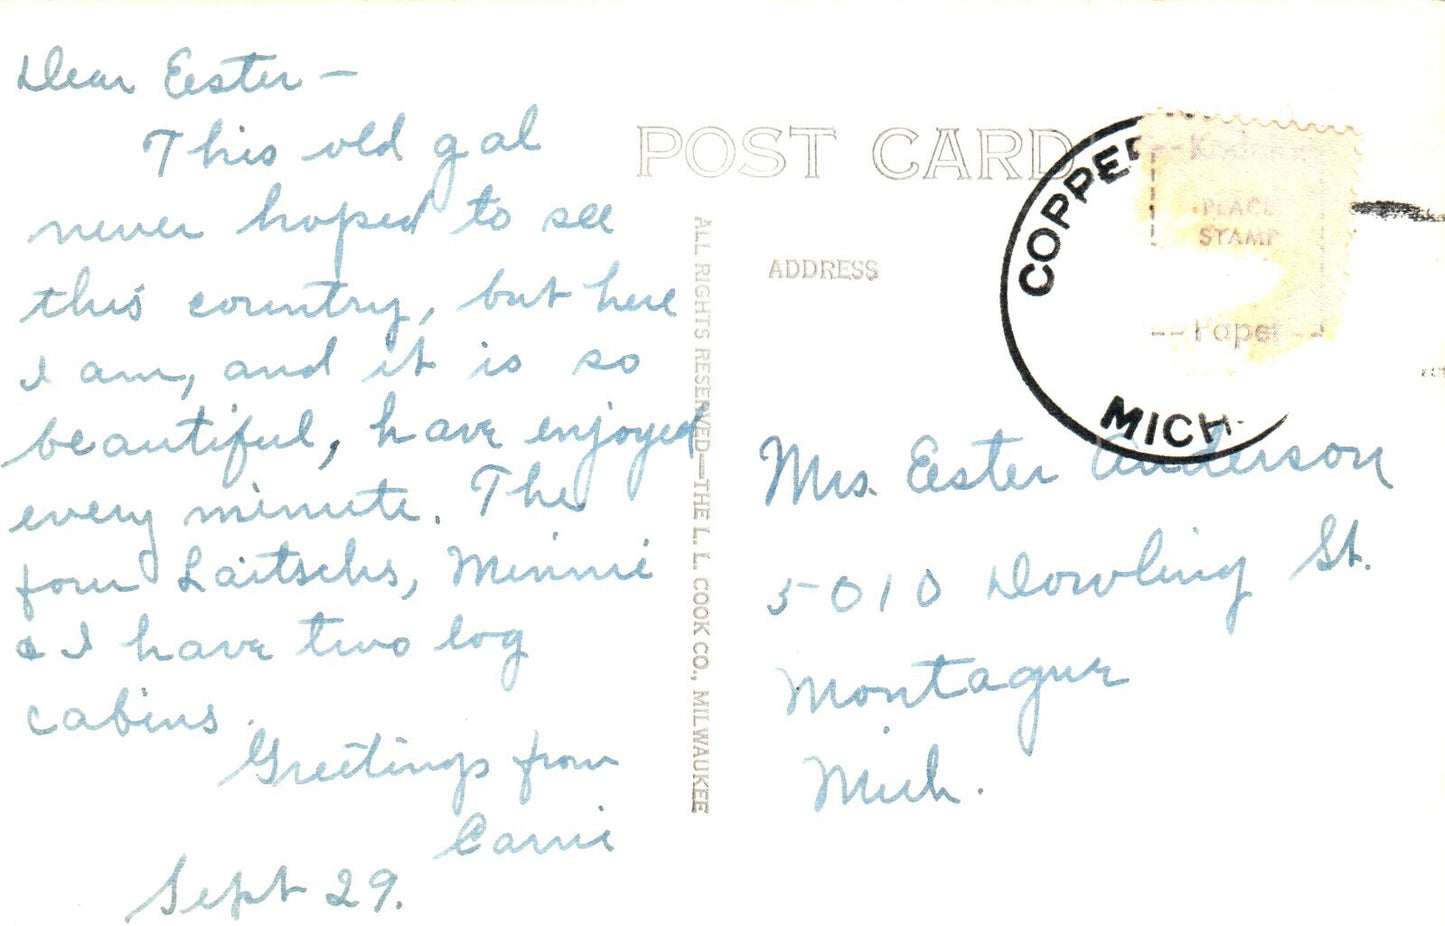 Dear Eester —
This old gal
never hoped to see
this country, but here
I am, and it is so
beautiful, have enjoyed
every minute. The
four Laitschs, Minnie
& I have two log
cabins.
Greetings from
Carrie
Sept 29.
POST CARD
ADDRESS
ALL RIGHTS RESERVED—THE L. L. COOK CO., MILWAUKEE
COPPER
MICH.
PLACE
STAMP
Paper
Mrs. Eester Anderson
5010 Dowling St.
Montague
Mich.